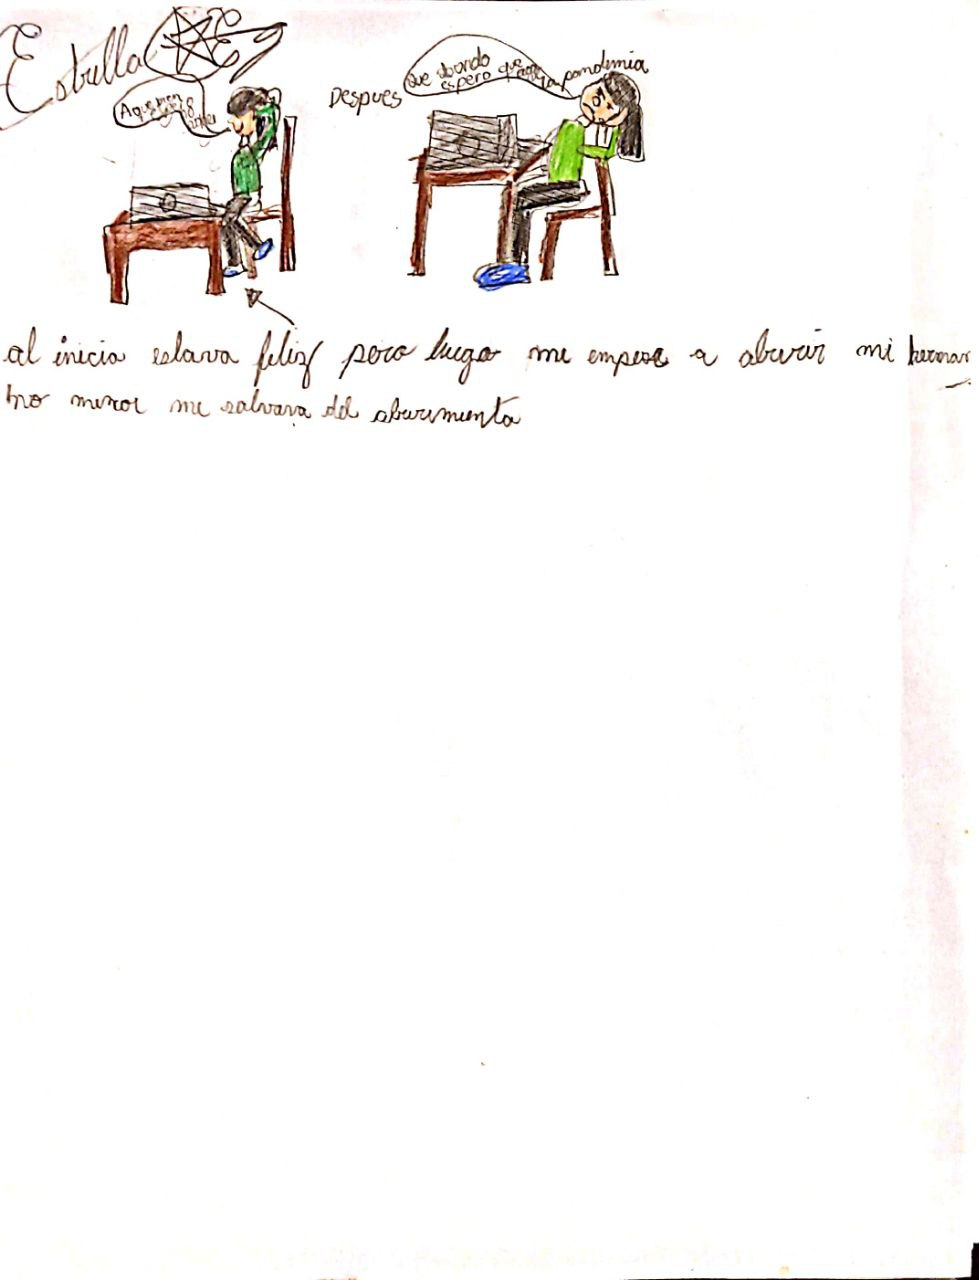 Estrella
Despues
Que aburido
espero que
la pandimia
al inicio estava feliz pero luego me empese a aburir mi herma
no menor me salvava del aburimiento